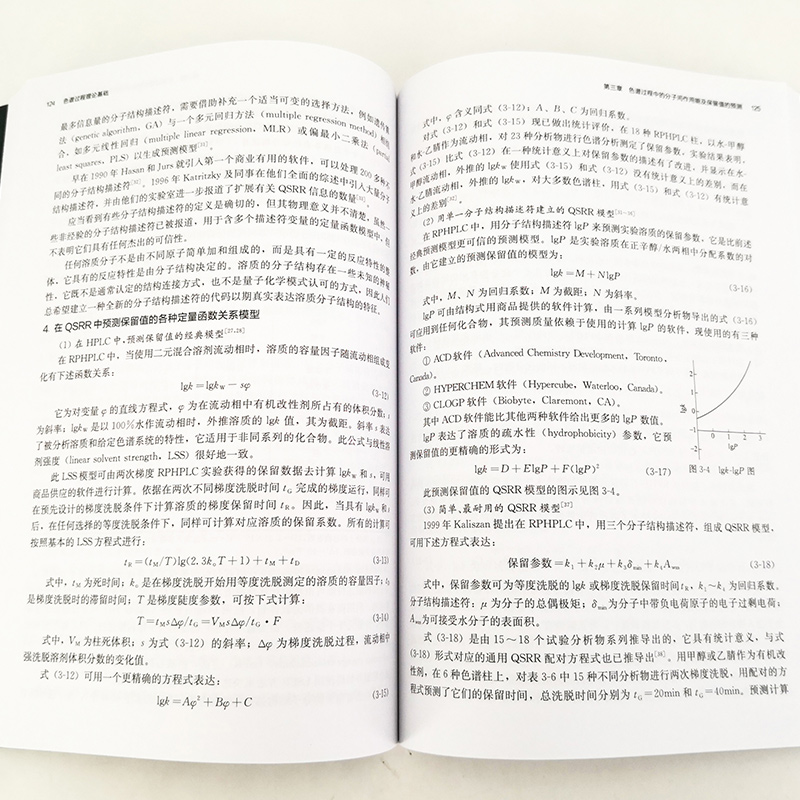 124 色谱过程理论基础
最多信息量的分子结构描述符，需要借助补充一个适当可变的选择方法，例如遗传算
法（genetic algorithm，GA）与一个多元回归方法（multiple regression method）相组
合，如多元线性回归（multiple linear regression，MLR）或偏最小二乘法（partial
least squares，PLS）以生成预测模型[31]。
早在 1990 年 Hasan 和 Jurs 就引入第一个商业有用的软件，可以处理 200 多种不
同的分子结构描述符[32]。1996 年 Katritzky 及同事在他们全面的综述中引入大量分子
结构描述符，并由他们的实验室进一步报道了扩展有关 QSRR 信息的数量[33]。
应当看到有些分子结构描述符的定义是确切的，但其物理意义并不清楚，虽然一
些非经验的分子结构描述符已被报道，用于含多个描述符变量的定量函数模型中，但
不表明它们具有任何杰出的可信性。
任何溶质分子不是由不同原子简单加和组成的，而是具有一定的反应特性的整
体，它具有的反应特性是由分子结构决定的。溶质的分子结构存在一些未知的神秘
性，它既不是通常认定的结构连接方式，也不是量子化学模式认可的方式，因此人们
总希望建立一种全新的分子结构描述符的代码以期真实表达溶质分子结构的特征。
4 在 QSRR 中预测保留值的各种定量函数关系模型
（1）在 HPLC 中，预测保留值的经典模型[27,28]
在 RPHPLC 中，当使用二元混合溶剂流动相时，溶质的容量因子随流动相组成变
化有下述函数关系：
lgk=lgkW－sφ (3-12)
它为对变量 φ 的直线方程式，φ 为在流动相中有机改性剂所占有的体积分数；s
为斜率；lgkW 是以 100%水作流动相时，外推溶质的 lgk 值，其为截距。斜率 s 表达
了被分析溶质和给定色谱系统的特性，它适用于非同系列的化合物。此公式与线性溶
剂强度（linear solvent strength，LSS）很好地一致。
此 LSS 模型可由两次梯度 RPHPLC 实验获得的保留数据去计算 lgkW 和 s，可用
商品供应的软件进行计算。依据在两次不同梯度洗脱时间 tG 完成的梯度运行，同样可
在预先设计的梯度洗脱条件下计算溶质的梯度保留时间 tR。因此，当具有 lgkW 和 s
后，在任何选择的等度洗脱条件下，同样可计算对应溶质的保留系数。所有的计算可
按照基本的 LSS 方程式进行：
tR=(tM/T)lg(2.3k0T+1)+tM+tD (3-13)
式中，tM 为死时间；k0 是在梯度洗脱开始用等度洗脱测定的溶质的容量因子；tD
是梯度洗脱时的滞留时间；T 是梯度陡度参数，可按下式计算：
T=tMsΔφ/tG=VMsΔφ/tG·F (3-14)
式中，VM 为柱死体积；s 为式（3-12）的斜率；Δφ 为梯度洗脱过程，流动相中
强洗脱溶剂体积分数的变化值。
式（3-12）可用一个更精确的方程式表达：
lgk=Aφ²+Bφ+C (3-15)
第三章 色谱过程中的分子间作用能及保留值的预测 125
式中，φ 含义同式（3-12）；A、B、C 为回归系数。
对式（3-12）和式（3-15）现已做出统计评价，在 18 种 RPHPLC 柱，以水-甲醇
和水-乙腈作为流动相，对 23 种分析物进行色谱分析测定了保留参数，实验结果表明，
式（3-15）比式（3-12）在一种统计意义上对保留参数的描述有了改进，并显示在水-
甲醇流动相，外推的 lgkW 使用式（3-15）和式（3-12）没有统计意义上的差别，而在
水-乙腈流动相，外推的 lgkW，对大多数色谱柱，用式（3-15）和式（3-12）有统计意
义上的差别
（2）用单一分子结构描述符建立的 QSRR 模型
在 RPHPLC 中，用分子结构描述符 lgP 来预测实验溶质的保留参数，它是比前述
经典预测模型更可信的预测模型。lgP 是实验溶质在正辛醇/水两相中分配系数的对
数，由它建立的预测保留值的模型为：
lgk=M+NlgP (3-16)
式中，M、N 为回归系数；M 为截距；N 为斜率。
lgP 可由结构式用商品提供的软件计算，由一系列模型分析物导出的式（3-16）
可应用到任何化合物，其预测质量依赖于使用的计算 lgP 的软件，现使用的有三种
软件：
① ACD软件（Advanced Chemistry Development，Toronto，
Canada）。
② HYPERCHEM 软件（Hypercube，Waterloo，Canada）。
③ CLOGP 软件（Biobyte，Claremont，CA）。
其中 ACD软件能比其他两种软件给出更多的 lgP 数值。
lgP 表达了溶质的疏水性（hydrophobicity）参数，它预
测保留值的更精确的形式为：
lgk=D+ElgP+F(lgP)² (3-17)
2
1
0
-1
-2
lgk
0 1 2 3
lgP
图 3-4 lgk-lgP 图
此预测保留值的 QSRR 模型的图示见图 3-4。
（3）简单、最耐用的 QSRR 模型[37]
1999 年 Kaliszan 提出在 RPHPLC 中，用三个分子结构描述符，组成 QSRR 模型，
可用下述方程式表达：
保留参数=k1+k2μ+k3δmin+k4Awas (3-18)
式中，保留参数可为等度洗脱的 lgk 或梯度洗脱保留时间 tR，k1～k4 为回归系数。
分子结构描述符：μ 为分子的总偶极矩；δmin为分子中带负电荷原子的电子过剩电荷；
Awas为可接受水分子的表面积。
式（3-18）是由 15～18 个试验分析物系列推导出的，它具有统计意义，与式
(3-18) 形式对应的通用 QSRR 配对方程式也已推导出[38]。用甲醇或乙腈作为有机改
性剂，在 6 种色谱柱上，对表 3-6 中 15 种不同分析物进行两次梯度洗脱，用配对的方
程式预测了它们的保留时间，总洗脱时间分别为 tG=20min 和 tG=40min。预测计算